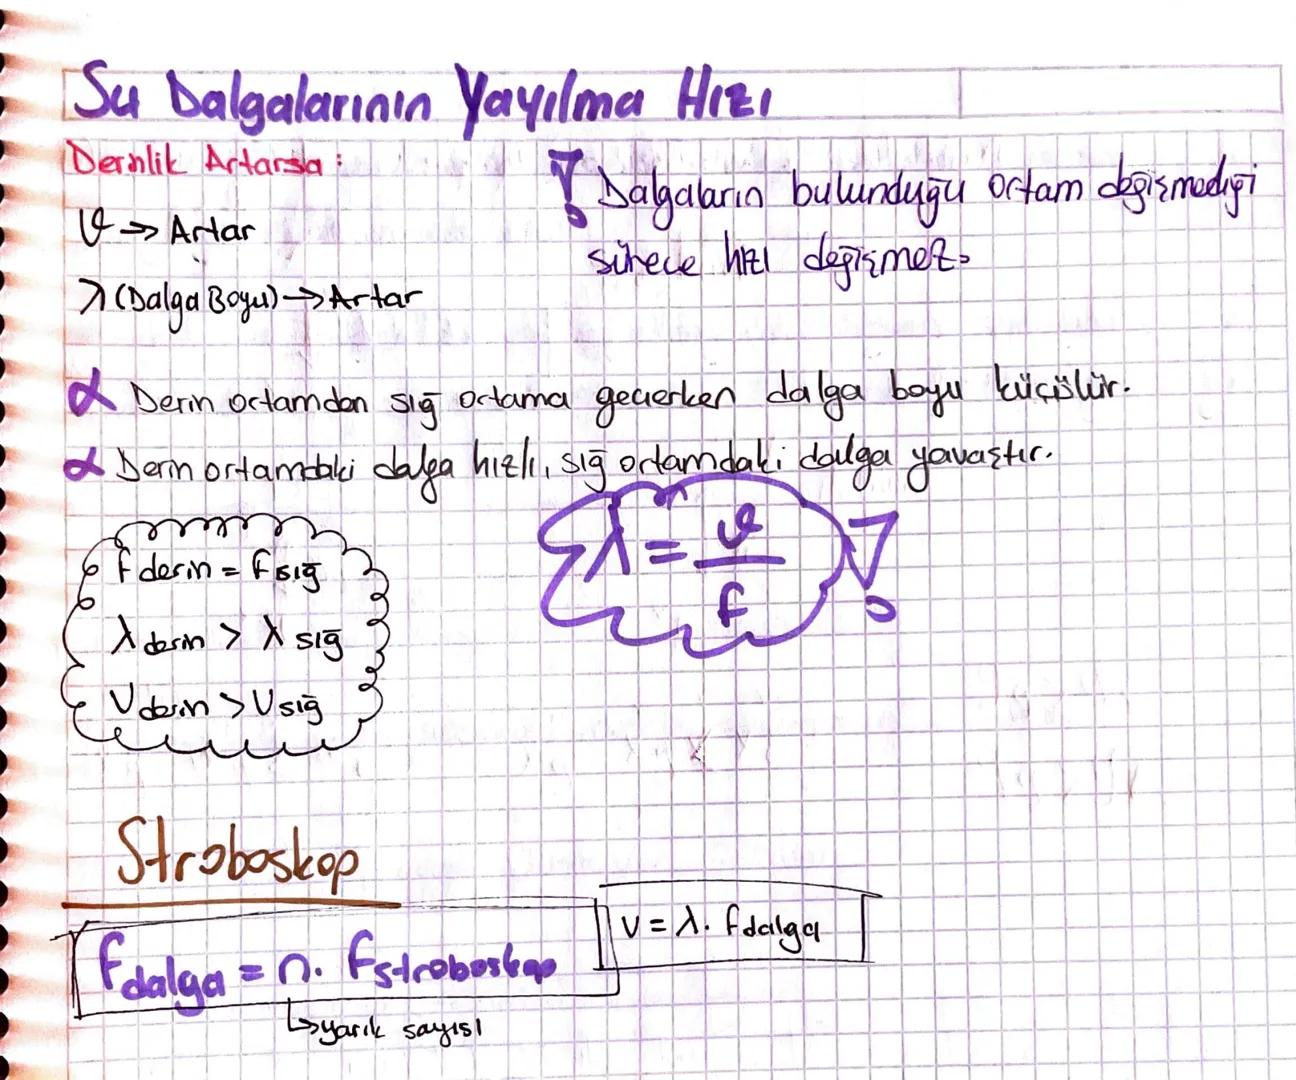 Su Dalgalarının Yayılma Hızı
Derinlik Artarsa :
! Dalgaların bulunduğu ortam değişmediği
sürece hızı değişmez.
ϑ → Artar
λ (Dalga Boyu) → Artar
α Derin ortamdan sığ ortama geçerken dalga boyu küçülür.
α Derin ortamdaki dalga hızlı, sığ ortamdaki dalga yavaştır.
f derin = f sığ
λ derin > λ sığ
V derin > V sığ
λ = ϑ / f !
Stroboskop
f dalga = n. f stroboskop
↳ yarık sayısı
V = λ. f dalga